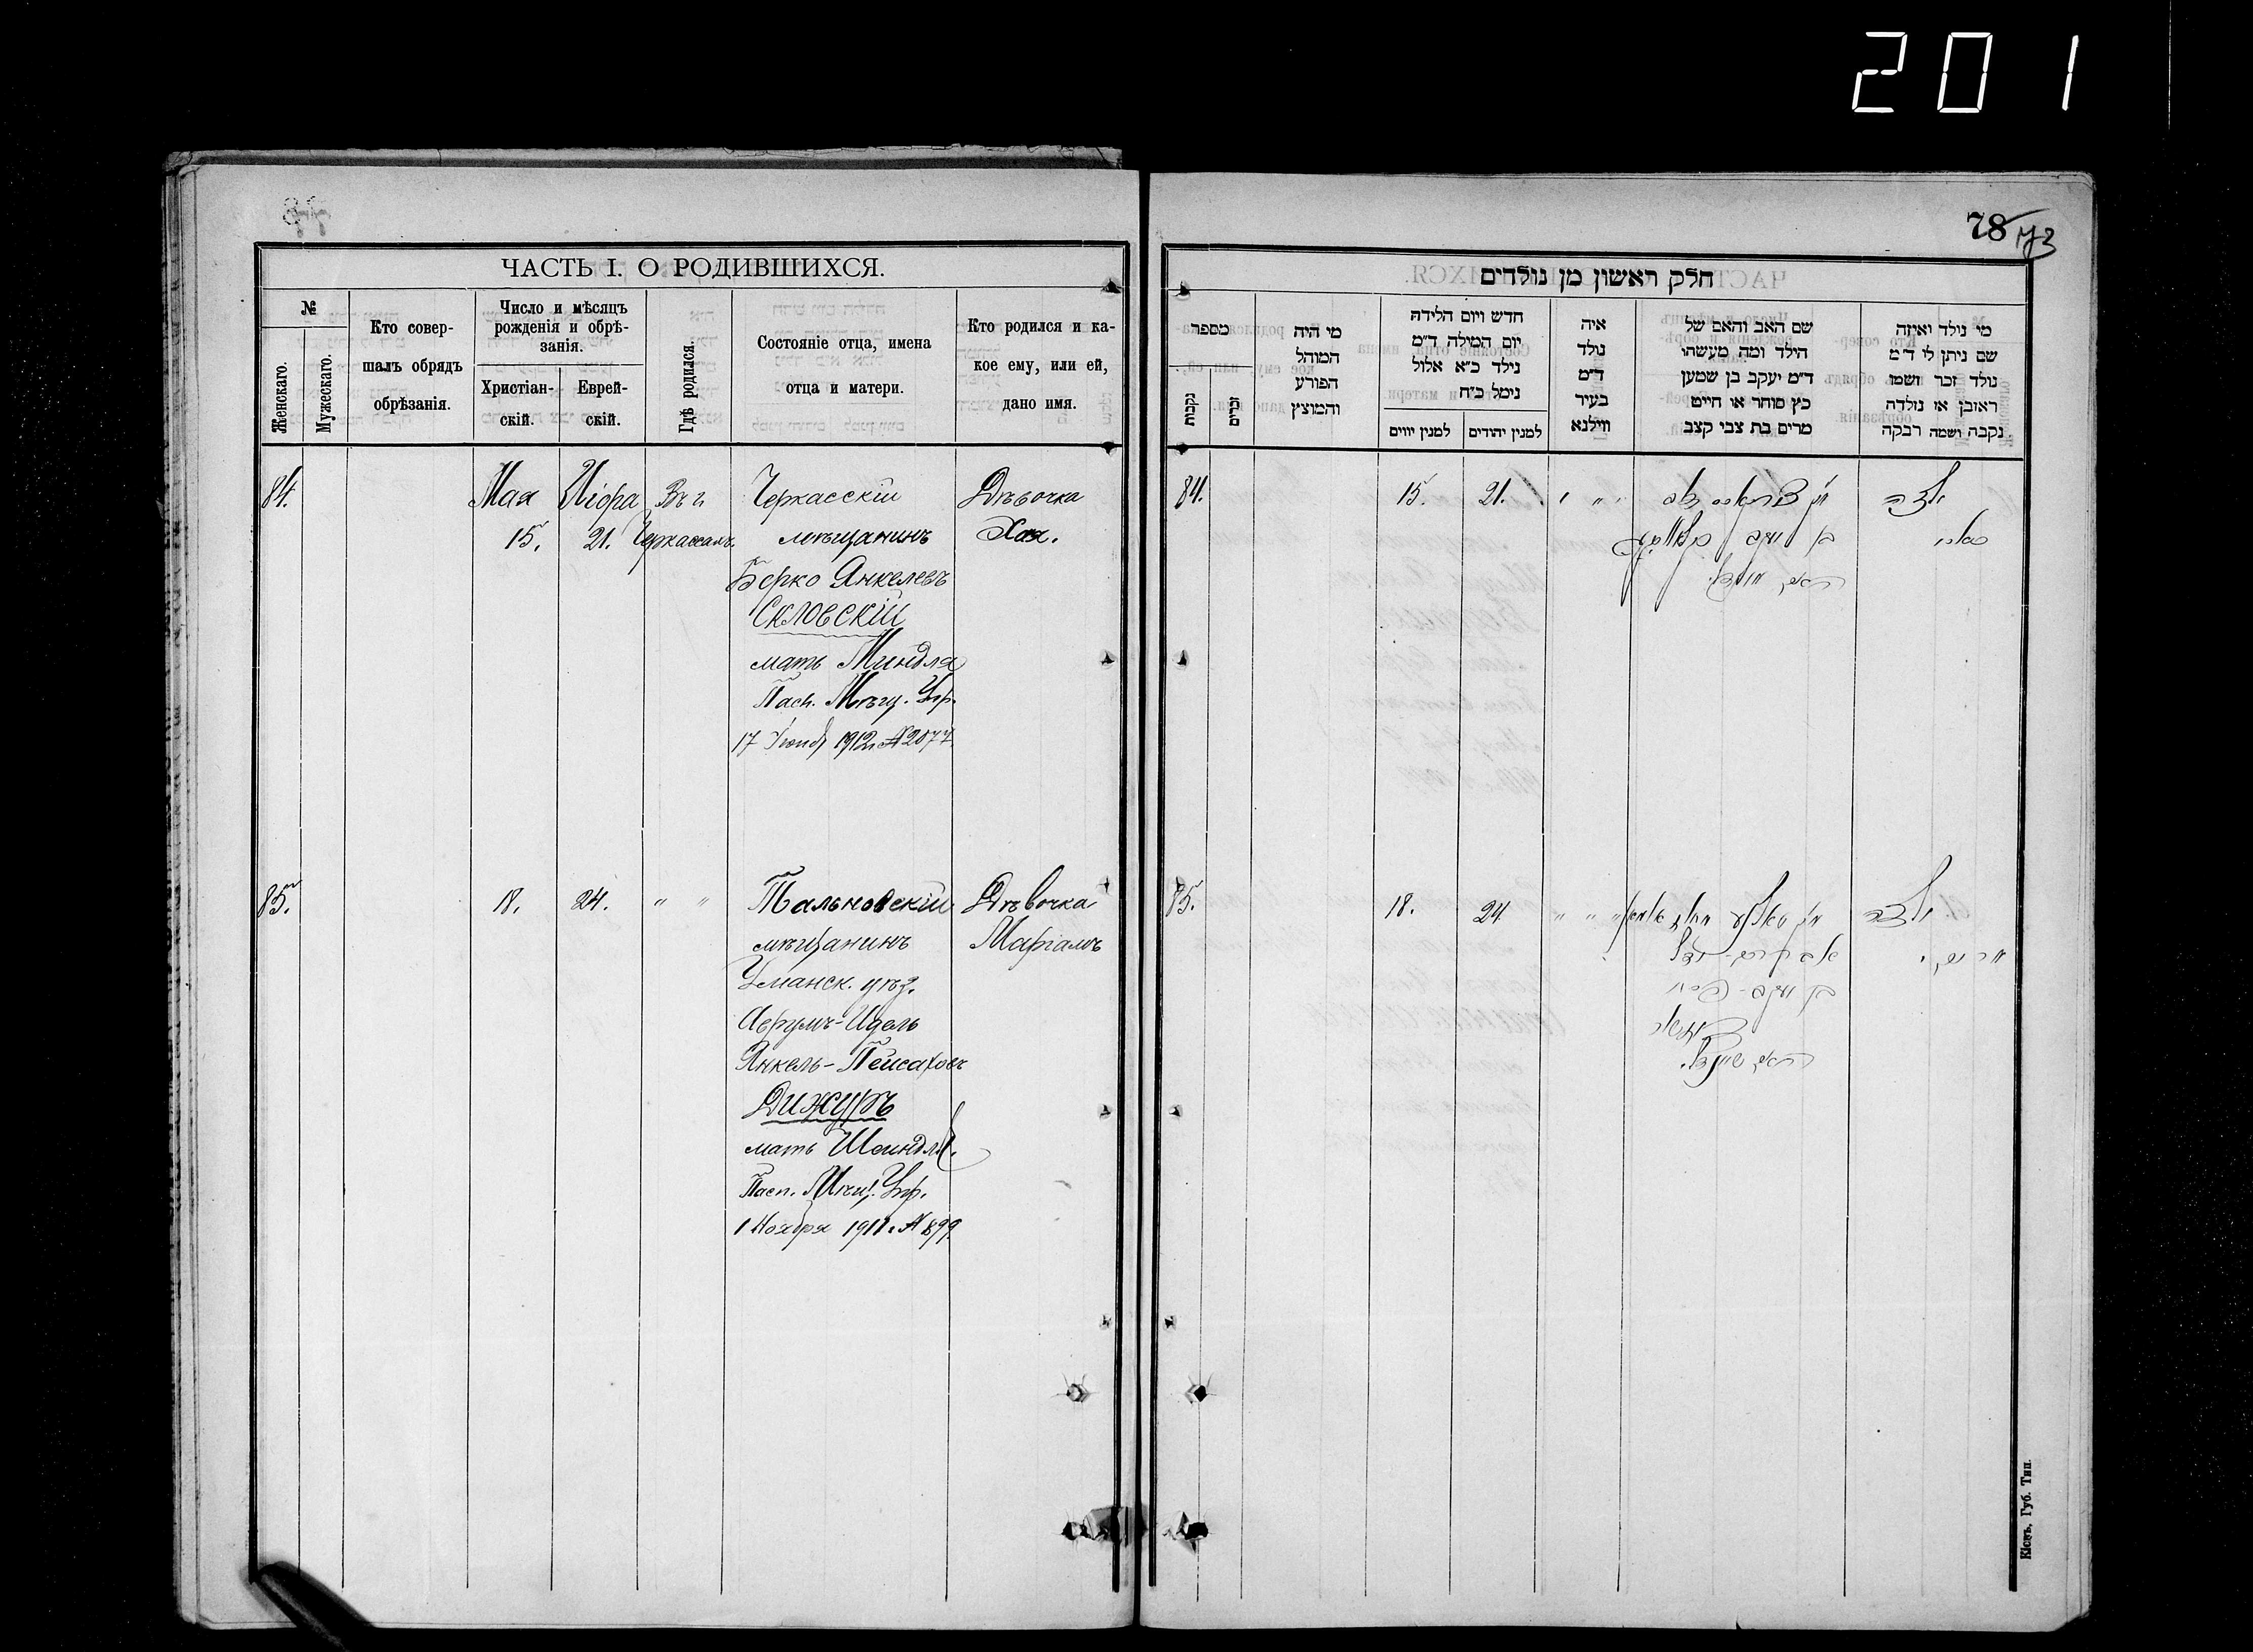 201
ЧАСТЬ I. О РОДИВШИХСЯ.
№
Женскаго.
Мужескаго.
Кто совер-
шалъ обрядъ
обрѣзанія.
Число и мѣсяцъ
рожденія и обрѣ-
занія.
Христіан-
скій.
Еврей-
скій.
Гдѣ родился.
Состояніе отца, имена
отца и матери.
Кто родился и ка-
кое ему, или ей,
дано имя.
84. Мая Иіара Въ г. Черкасскій Дѣвочка
15. 21. Черкассахъ. мѣщанинъ Хая.
Берко Янкелевъ
Скловскій
мать Миндля
Пасп. Мѣщ. Упр.
17 1912 г. № 2077
85. 18. 24. " " Тальновскій Дѣвочка
мѣщанинъ Маріамъ
Уманск. уѣз.
Аврумъ-Идель
Янкель-Пейсаховъ
Дижуръ
мать Шейндля.
Пасп. Мѣщ. Упр.
1 Ноября 1911 г. № 899.
78 73
חלק ראשון מן נולדים
מי נולד ואיזה
שם ניתן לו ד״מ
נולד זכר ושמו
ראובן או נולדה
נקבה ושמה רבקה
שם האב והאם של
הילד ומה מעשהו
ד״מ יעקב בן שמען
כץ סוחר או חייט
מרים בת צבי קצב
איה
נולד
ד״מ
בעיר
ווילנא
חדש ויום הלידה
יום המילה ד״מ
נילד כ״א אלול
נימל כ״ח
למנין יהודים
למנין יווים
מי היה
המוהל
הפורע
והמוצץ
מספר
זכרים
נקבות
84. 15. 21. " "
ילדה
בן יעקב
האם מינדל.
85. 18. 24 " " "
ילדה
אברהם-יודל
בן יעקב-פסח
האם שיינדל.
Кіевъ, Губ. Тип.